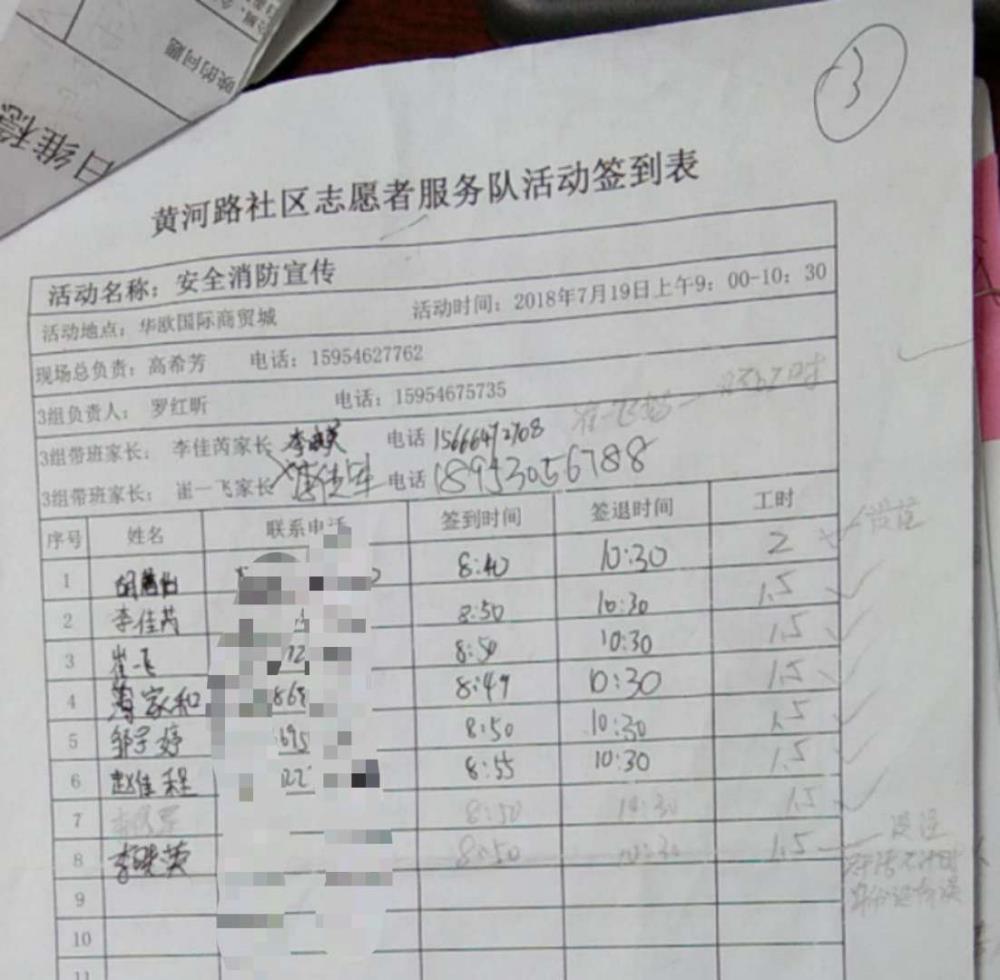 晚的问题
日维稳
3
黄河路社区志愿者服务队活动签到表
活动名称：安全消防宣传
活动地点：华欧国际商贸城 活动时间：2018年7月19日上午9：00-10：30
现场总负责：高希芳 电话：15954627762
3组负责人： 罗红昕 电话：15954675735
3组带班家长： 李佳芮家长 电话 15666472708
3组带班家长： 崔一飞家长 电话 18953056788
序号 姓名 联系电话 签到时间 签退时间 工时
1 8:40 10:30 2 没注
2 李佳芮 8:50 10:30 1.5
3 崔一飞 8:50 10:30 1.5
4 家和 868 8:49 10:30 1.5
5 邹子婷 695 8:50 10:30 1.5
6 赵佳程 22 8:55 10:30 1.5
7 8:50 10:30 1.5
8 李晓英 8:50 10:30 1.5 没注
9
10
11